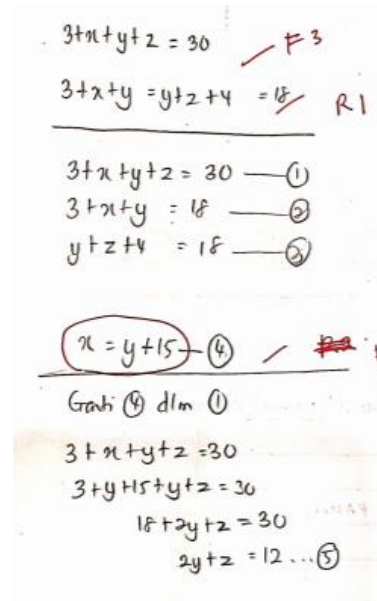 3+x+y+z = 30 F3
3+x+y = y+z+4 = 18 R1
3+x+y+z = 30 — ①
3+x+y = 18 — ②
y+z+4 = 18 — ③
x = y+15 — ④
Ganti ④ dlm ①
3+x+y+z = 30
3+y+15+y+z = 30
18+2y+z = 30
2y+z = 12 ... ⑤